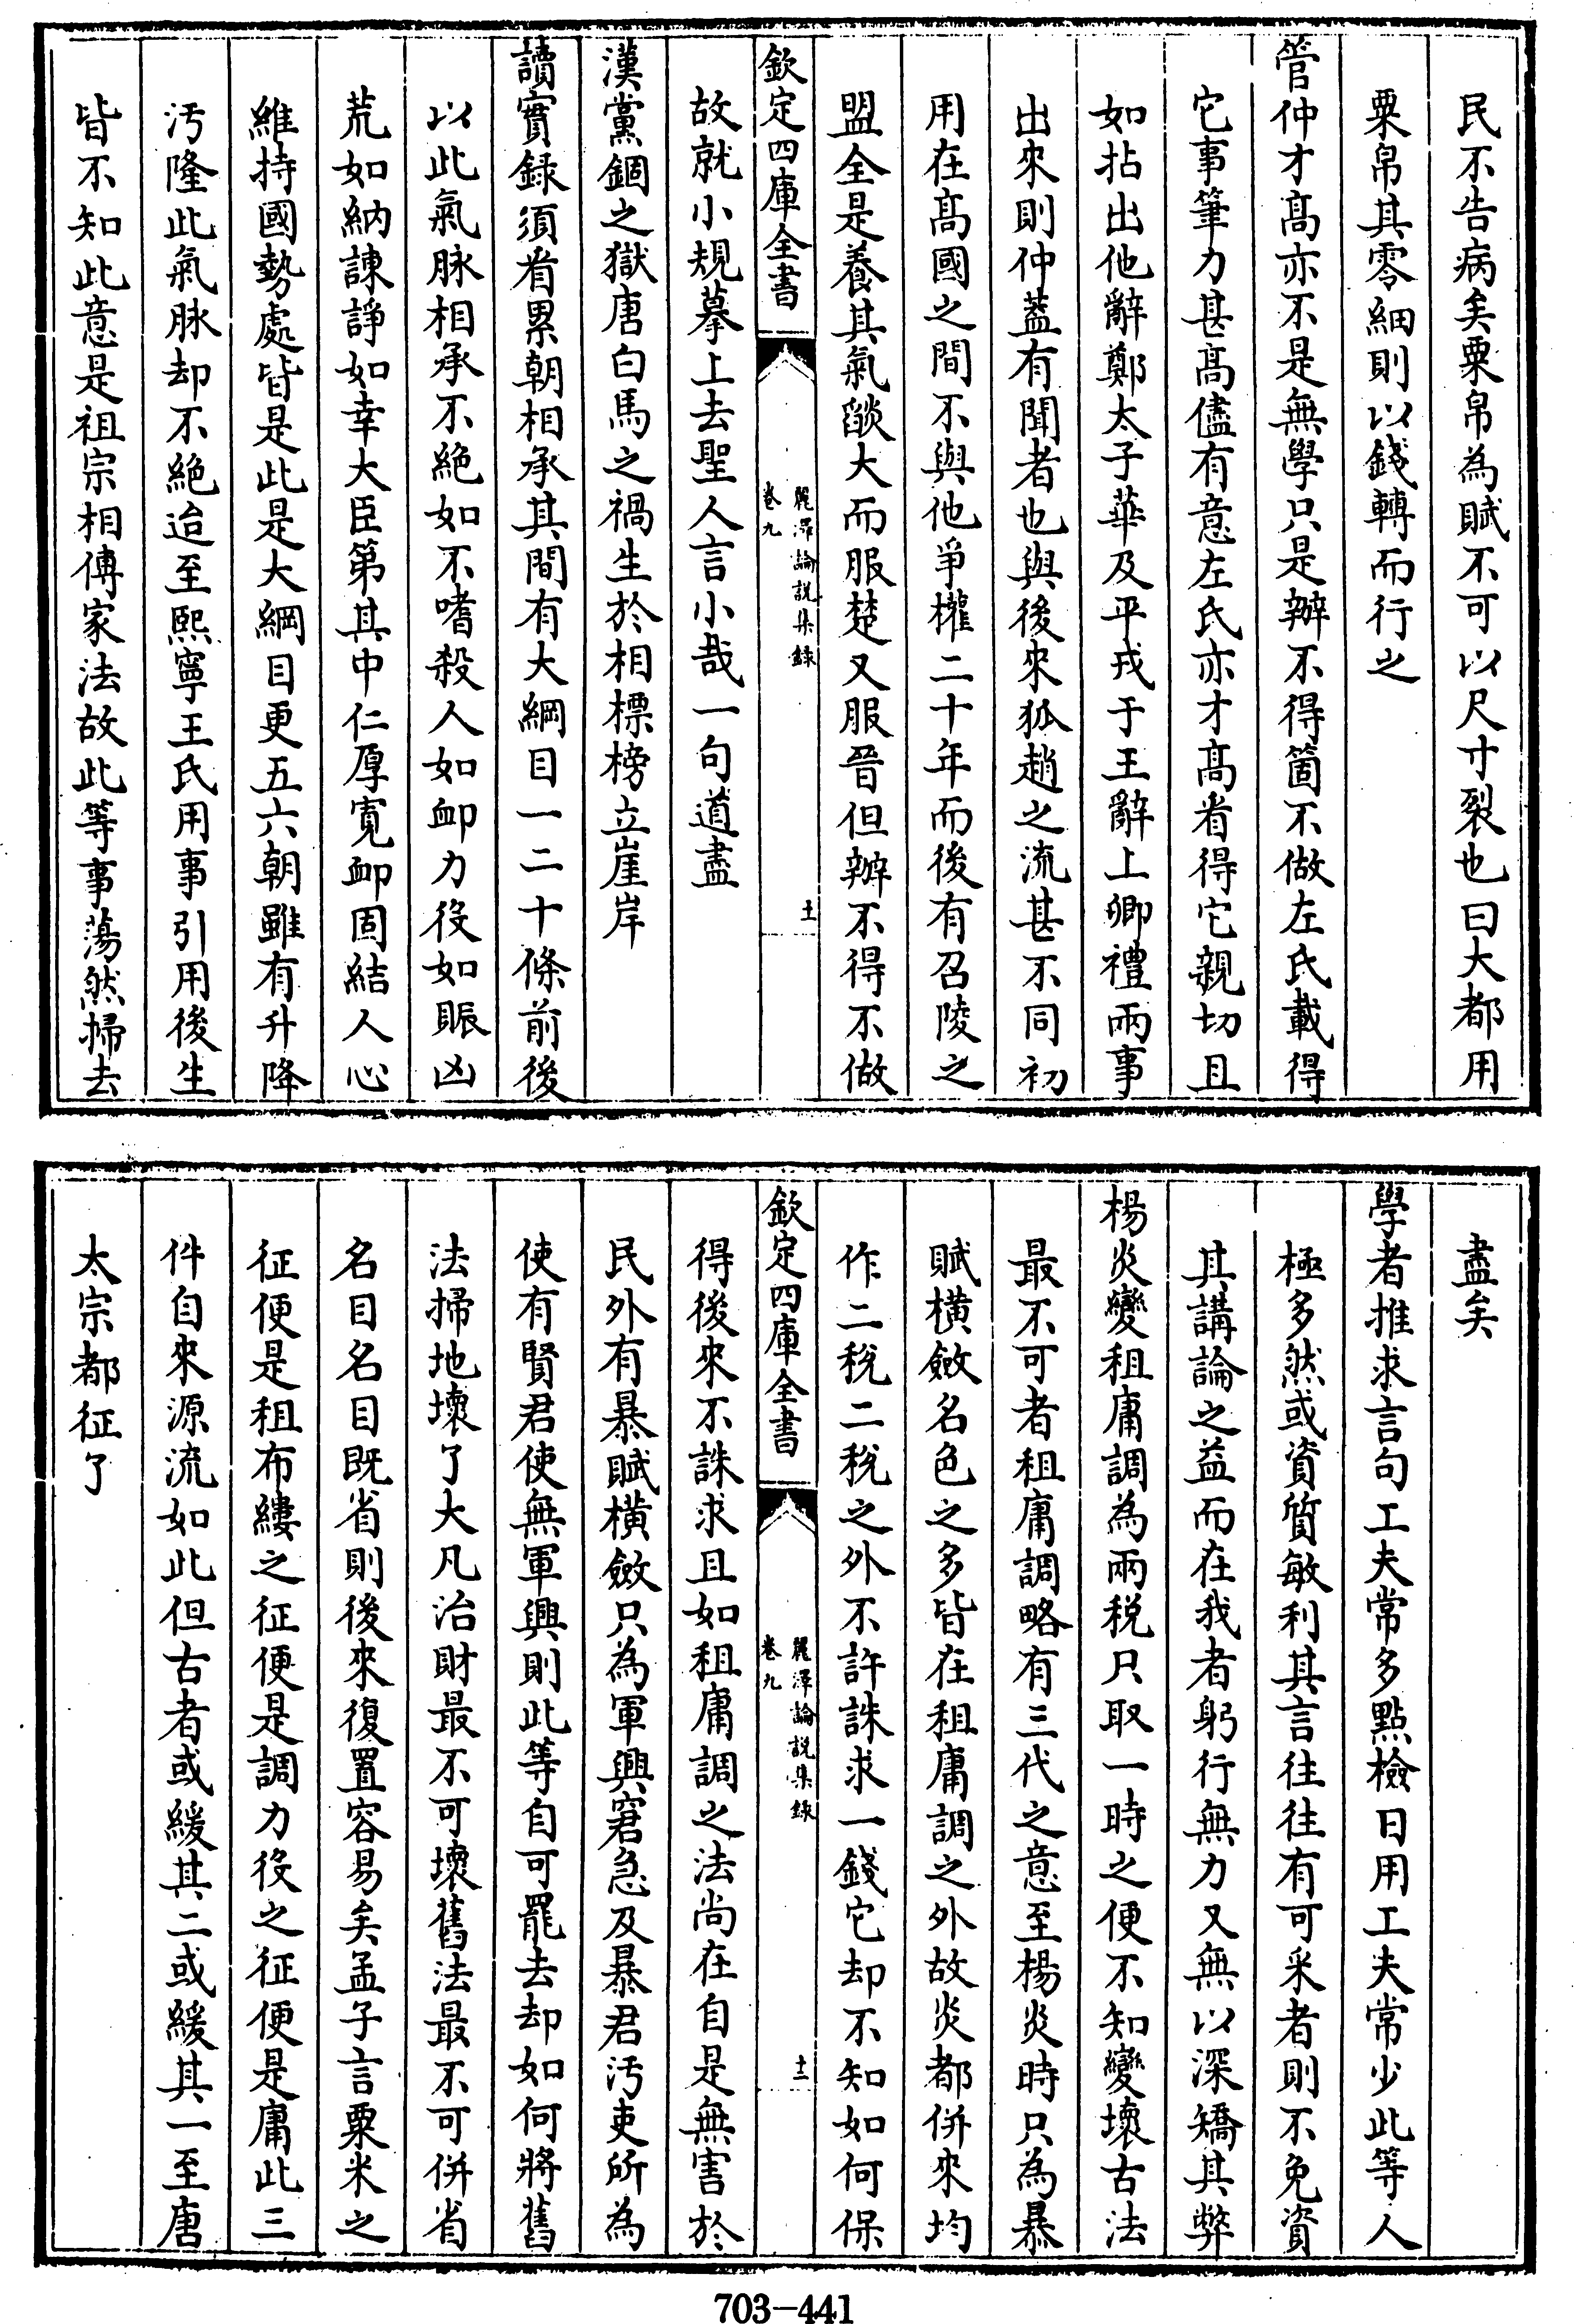 民不告病矣粟帛為賦不可以尺寸裂也曰大都用
粟帛其零細則以錢轉而行之
管仲才髙亦不是無學只是辦不得箇不做左氏載得
它事筆力甚髙儘有意左氏亦才髙看得它親切且
如拈出他辭鄭太子華及平戎于王辭上卿禮兩事
出來則仲蓋有聞者也與後來狐趙之流甚不同初
用在髙國之間不與他爭權二十年而後有召陵之
盟全是養其氣燄大而服楚又服晉但辦不得不做
欽定四庫全書
麗澤論説集錄
卷九
十一
故就小規摹上去聖人言小哉一句道盡
漢黨錮之獄唐白馬之禍生於相標榜立崖岸
讀實録須看累朝相承其間有大綱目一二十條前後
以此氣脉相承不絶如不嗜殺人如䘏力役如賑凶
荒如納諫諍如幸大臣第其中仁厚寛䘏固結人心
維持國勢處皆是此是大綱目更五六朝雖有升降
汚隆此氣脉却不絶迨至熙寧王氏用事引用後生
皆不知此意是祖宗相傳家法故此等事蕩然掃去
盡矣
學者推求言句工夫常多點檢日用工夫常少此等人
極多然或資質敏利其言往往有可采者則不免資
其講論之益而在我者躬行無力又無以深矯其弊
楊炎變租庸調為兩税只取一時之便不知變壞古法
最不可者租庸調略有三代之意至楊炎時只為暴
賦橫斂名色之多皆在租庸調之外故炎都併來均
作二税二税之外不許誅求一錢它却不知如何保
欽定四庫全書
麗澤論説集錄
卷九
十二
得後來不誅求且如租庸調之法尚在自是無害於
民外有暴賦橫斂只為軍興窘急及暴君汚吏所為
使有賢君使無軍興則此等自可罷去却如何將舊
法掃地壞了大凡治財最不可壞舊法最不可併省
名目名目既省則後來復置容易矣孟子言粟米之
征便是租布縷之征便是調力役之征便是庸此三
件自來源流如此但古者或緩其二或緩其一至唐
太宗都征了
703-441